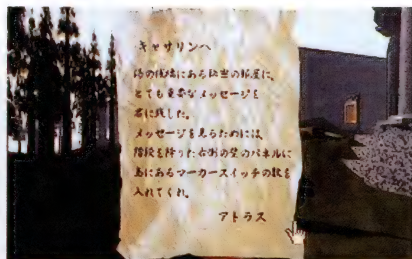 キャサリンへ
島の後端にある秘密の部屋に、
とても重要なメッセージを
君に残した。
メッセージを見るためには、
階段を降りた右側の壁のパネルに
島にあるマーカースイッチの数を
入れてくれ。
アトラス